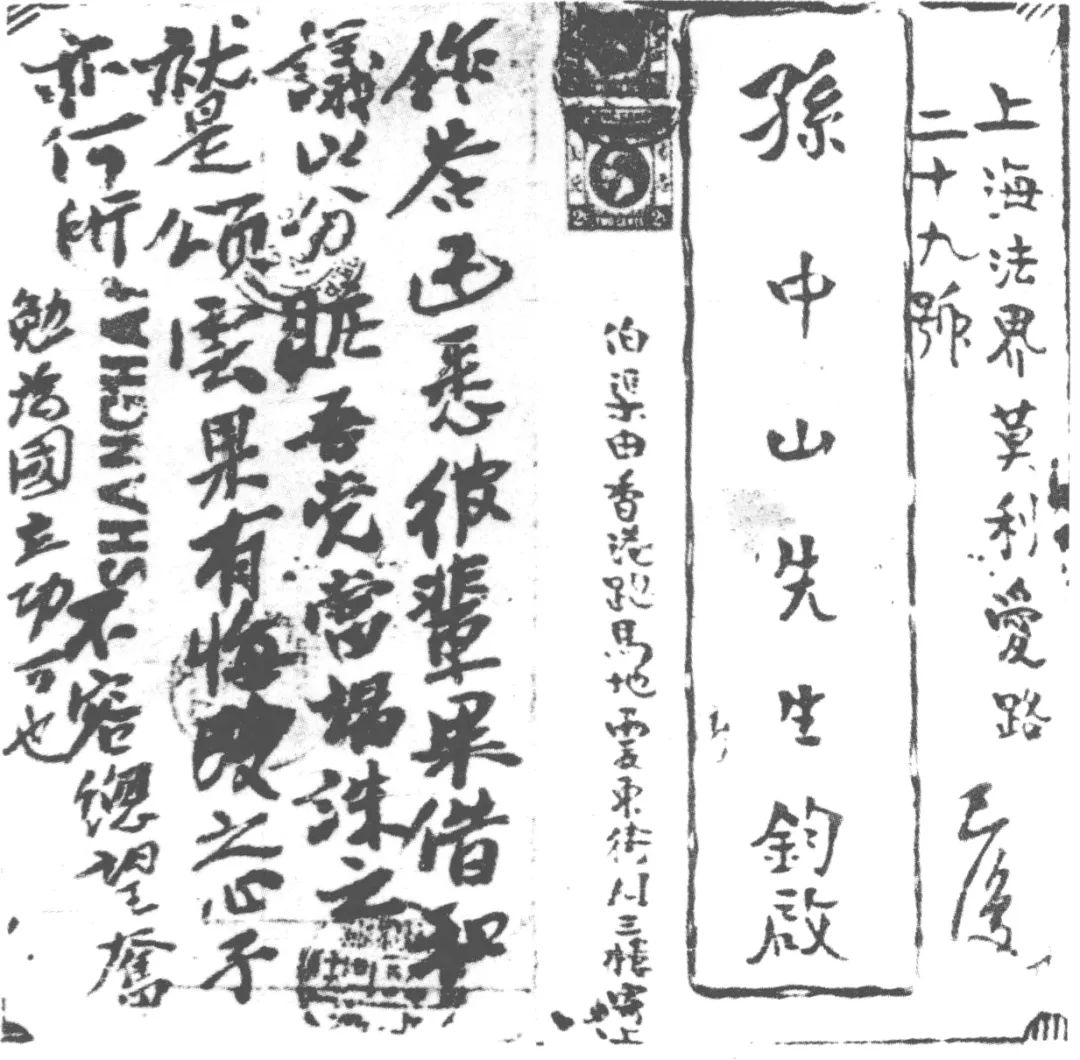 上海法界莫利愛路
二十九號
已復
孫中山先生鈞啟
伯渠由香港跑馬地雲東街川三樓寄上
作答函悉彼輩果借和
議以分賍吾党當揭誅之
就是頌雲果有悔改之心予
亦何所不容總望奮
勉為國立功可也
SHANGHAI